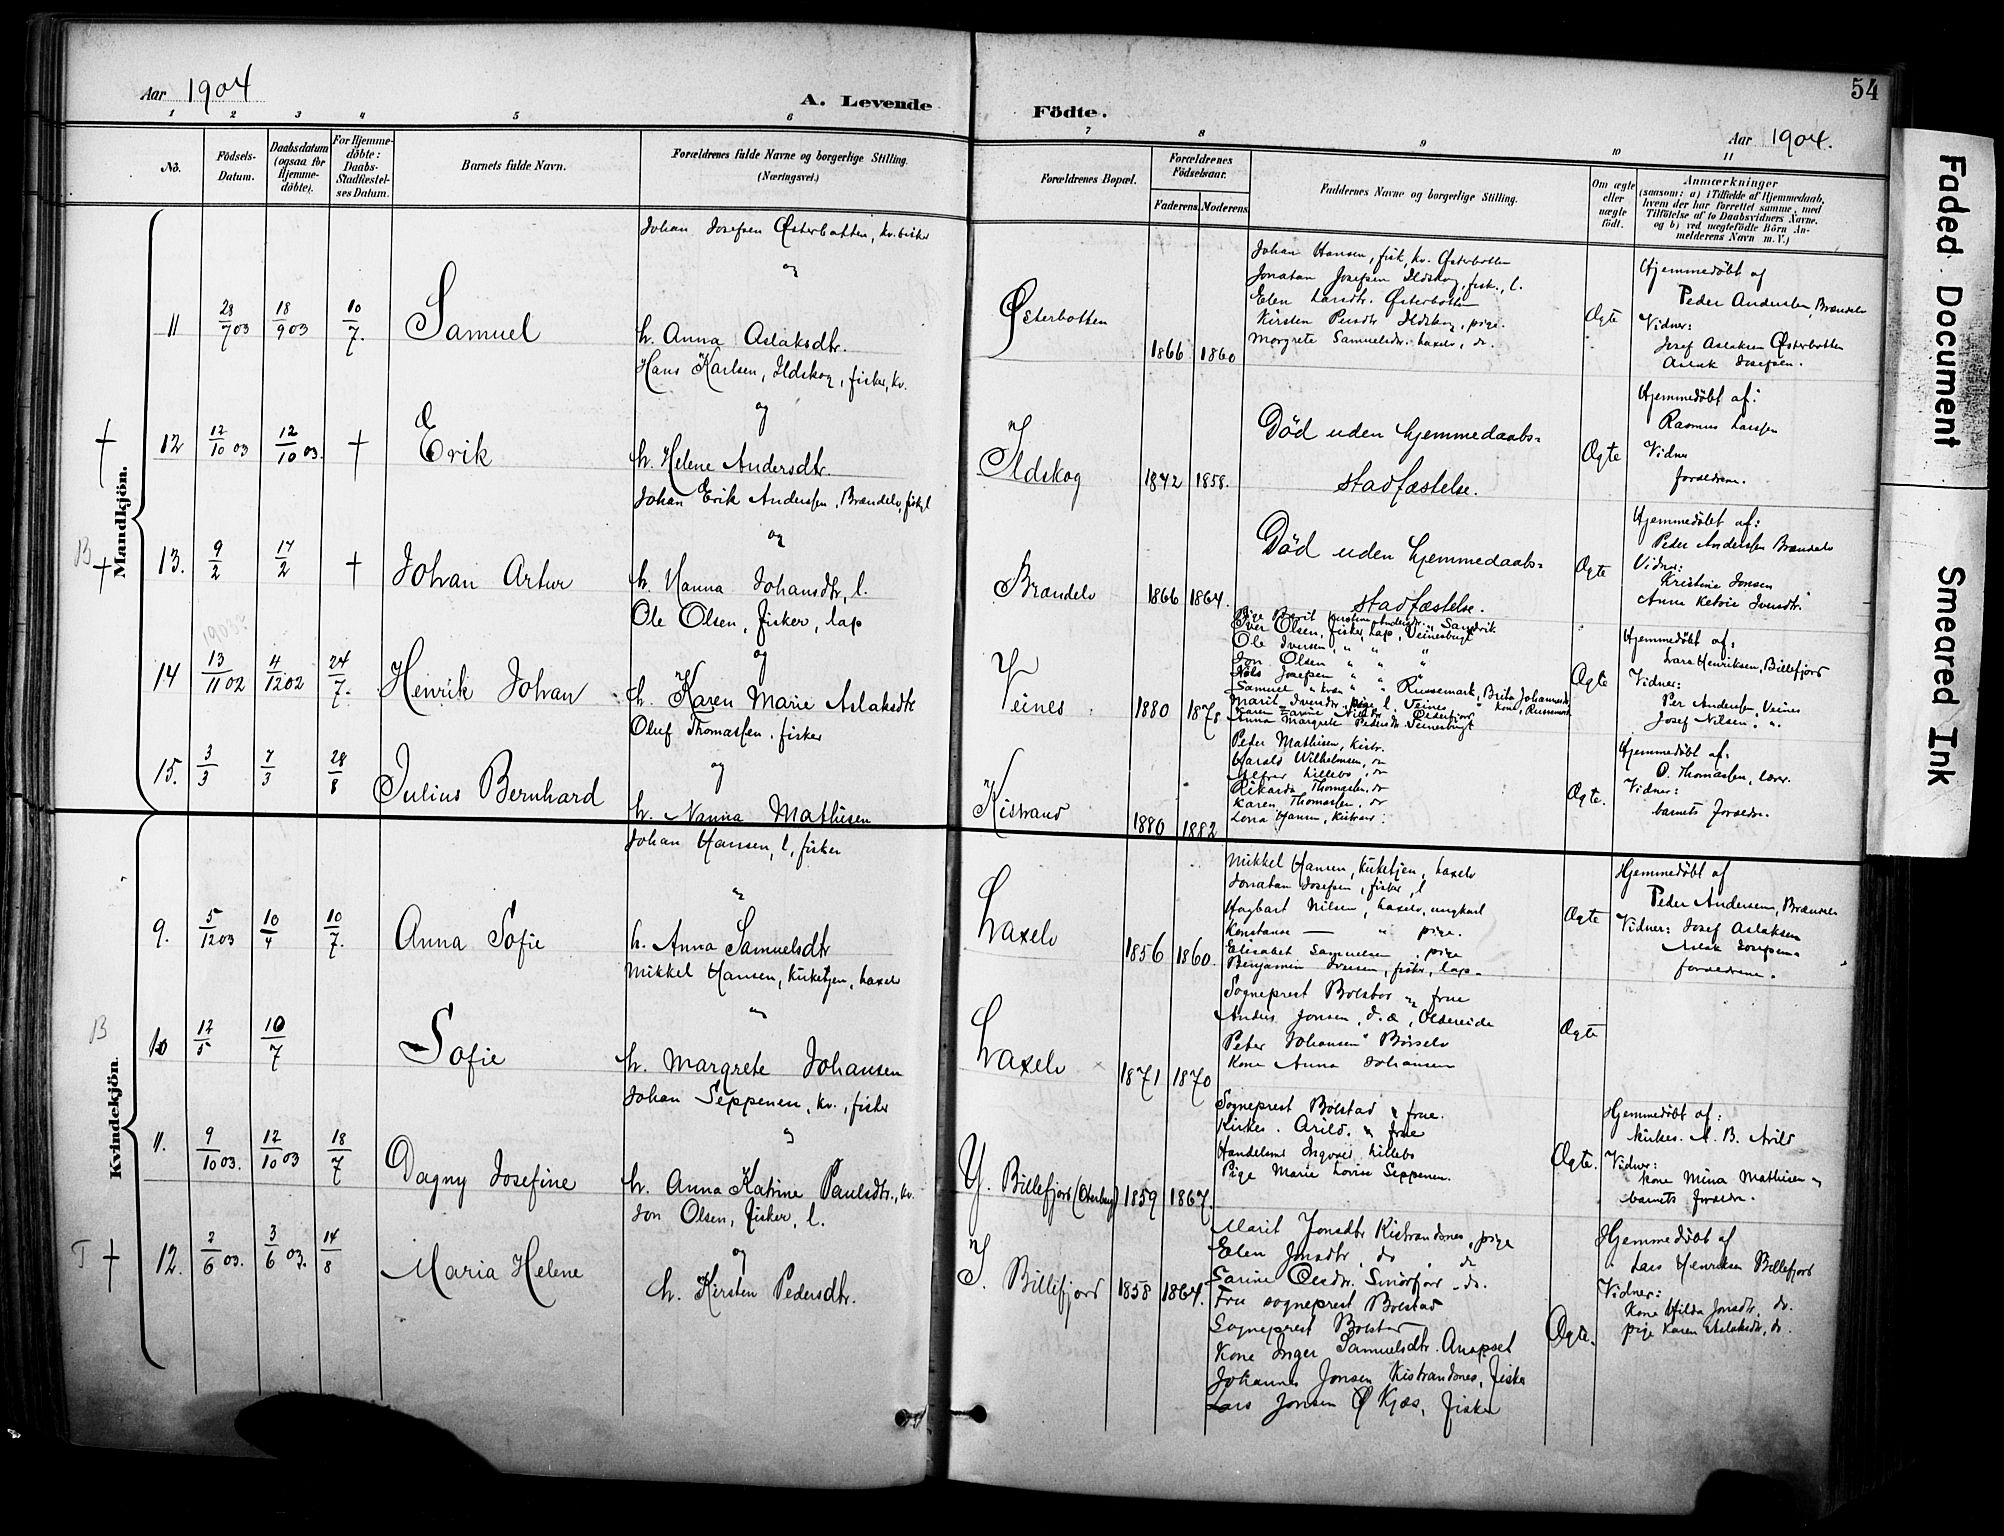 Aar 1904
A. Levende
Födte.
Aar 1904.
54
1 2 3 4 5 6 7 8 9 10 11
No.
Födsels-Datum.
Daabsdatum (ogsaa for Hjemmedöbte).
For Hjemmedöbte: Daabs-Stadfæstelses Datum.
Barnets fulde Navn.
Forældrenes fulde Navne og borgerlige Stilling. (Næringsvei.)
Forældrenes Bopæl.
Forældrenes Födselsaar.
Faderens. Moderens.
Faddernes Navne og borgerlige Stilling.
Om ægte eller uægte født.
Anmærkninger
(saasom: a) i Tilfælde af Hjemmedaab, hvem der har forrettet samme, med Tilföielse af to Daabsvidners Navne, og b) ved uægtefödte Börn Anmelderens Navn m. V.)
Mandkjön.
11 28/7 03 18/9 03 10/7. Samuel
Johan Josefsen Østerbotten, kv. fisker
og
h. Anna Aslaksdtr.
Østerbotten 1866 1860
Johan Hansen, fisk, kv. Østerbotten
Jonatan Josefsen Ildskog, fisk., l.
Elen Larsdtr. Østerbotten
Kirsten Persdtr Ildskog, pige.
Margrete Samuelsdtr. Laxelv, do.
Ægte
Hjemmedöbt af
Peder Andersen, Brændelv
Vidner:
Josef Aslaksen Østerbotten
Aslak Josefsen.
12 12/10 03 12/10 03. † Erik
Hans Karlsen, Ildskog, fisker, kv.
og
h. Helene Andersdtr.
Ildskog 1842 1858.
Död uden hjemmedaabs=
stadfæstelse.
Ægte
Hjemmedöbt af:
Rasmus Larssen
Vidner
forældrene.
B
13. 9/2 14/2 † Johan Artur
Johan Erik Anderssen, Brændelv, fisk, l
og
h. Hanna Johansdtr, l.
Brændelv 1866 1864.
Död uden hjemmedaabs=
stadfæstelse.
Ægte
Hjemmedöbt af:
Peder Anderssen Brændelv
Vidner:
Kristine Jonsen
Anne Iversdtr.
1903?
14 13/11 02 4/12 02 24/7. Henrik Johan
Ole Olsen, fisker, lap
og
h. Karen Marie Aslaksdtr
Veines 1880 1878
Iver Olsen, fisker, lap, Veinesbugt
Ole Iversen, " " "
Jon Olsen " " "
Nils Josefsen " " "
Anna Margrete Pedersdtr Veinesbugt
Ægte
Hjemmedöbt af:
Lars Henriksen, Billefjord
Vidner:
Per Andersen, Veines
Josef Nilsen, ".
15. 3/3 7/3 28/8 Julius Bernhard
Oluf Thomassen, fisker
og
h. Nanna Mathisen
Kistrand 1880 1882
Peder Mathisen, Kistr.
Harald Wilhelmsen, do
Alfred Lillebo, do
Rikarda Thomassen, do
Karen Thomassen, do
Lona Hansen, Kistrand.
Ægte.
Hjemmedöbt af:
O. Thomassen, lærer.
Vidner:
barnets forældre.
Kvindekjön.
9. 5/12 03 10/4 10/7. Anna Sofie
Johan Hansen, l, fisker
og
h. Anna Samuelsdtr
Laxelv 1856 1860.
Mikkel Hansen, kirketjen, Laxelv
Jonatan Josefsen, fisker, l
Hagbart Nilsen, Laxelv, ungkarl
Konstanse — " pige.
Elisabet Samuelsen pige
Benjamin Iversen, fisker, lap.
Ægte
Hjemmedöbt af
Peder Andersen, Brændelv
Vidner: Josef Aslaksen
Aslak Josefsen
forældrene.
B
10 12/5 10/7 Sofie
Mikkel Hansen, kirketjen, Laxelv
og
h. Margrete Johansen
Laxelv 1871 1870
Sogneprest Bolstad og frue
Anders Jonsen, d. æ, Oldereide
Peter Johansen Börselv
Kone Anna Johansen
Ægte
11. 9/10 03. 12/10 03 18/7 Dagny Josefine
Johan Seppenen, kv., fisker
og
h. Anna Katrine Paulsdtr., kv.
Y. Billefjord 1859 1867.
Sogneprest Bolstad og frue.
Kirkes. Arild. og frue
Handelsmd Ingvald Lillebo
Pige Marie Lovise Seppenen.
Ægte.
Hjemmedöbt af:
kirkes. A. B. Arild
Vidner:
kone Mina Mathisen og
barnets forældre.
T †
12. 2/6 03. 3/6 03. 14/8 Maria Helene
Jon Olsen, fisker, l.
og
h. Kirsten Pedersdtr.
I. Billefjord 1858 1864.
Marit Jonsdtr Kistrandnes, pige
Elen Jonsdtr, do , do
Sarine Olsdtr. Smörfjord do.
Fru sogneprest Bolstad
Sogneprest Bolstad
Kone Inger Samuelsdtr. Anopset
Johannes Jonsen Kistrandnes, fisker
Lars Jonsen Ø Kjæs, fisker
Ægte.
Hjemmedöbt af
Lars Henriksen Billefjord
Vidner:
Kone Hilda Jonsdtr, do.
pige Karen Aslaksdtr, do.
Faded Document
Smeared Ink